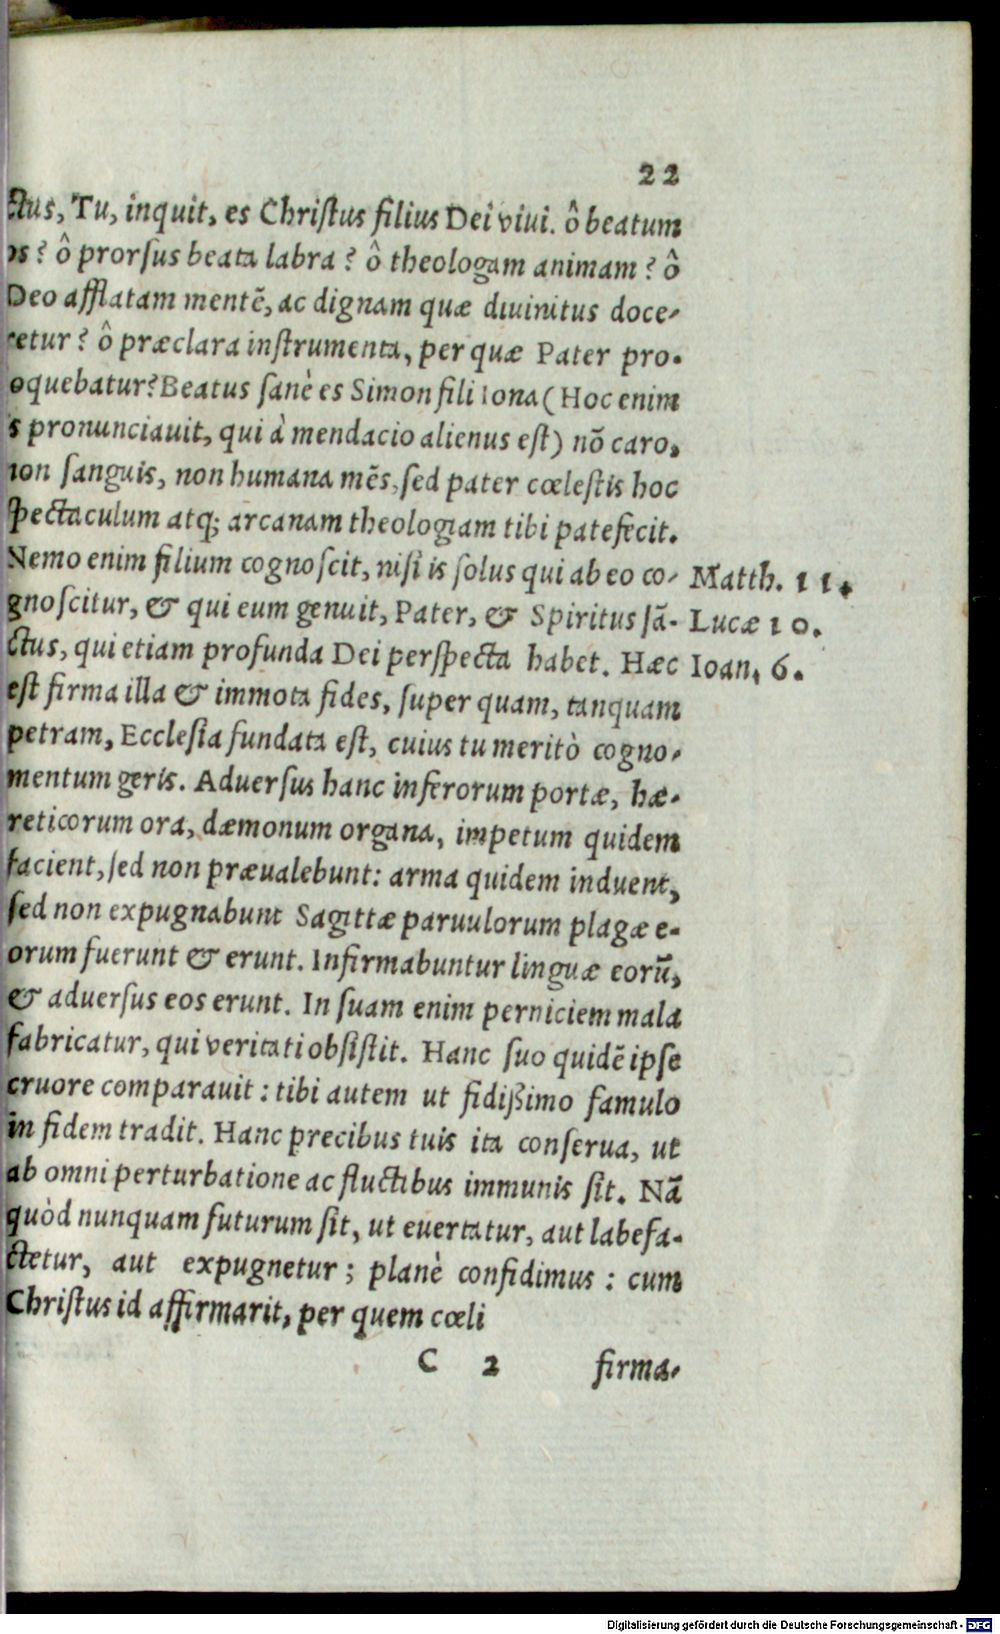 22
ctus, Tu, inquit, es Chriſtus filius Dei viui. ô beatum
os? ô prorſus beata labra? ô theologam animam? ô
Deo afflatam mentē, ac dignam quæ diuinitus doce-
retur? ô præclara inſtrumenta, per quæ Pater pro-
oquebatur? Beatus ſanè es Simon fili Iona (Hoc enim
is pronunciauit, qui à mendacio alienus eſt) nō caro,
non ſanguis, non humana mēs, ſed pater cœleſtis hoc
ſpectaculum atq; arcanam theologiam tibi patefecit.
Nemo enim filium cognoſcit, niſi is ſolus qui ab eo co- Matth. 11.
gnoſcitur, & qui eum genuit, Pater, & Spiritus ſā- Lucæ 10.
ctus, qui etiam profunda Dei perſpecta habet. Hæc Ioan. 6.
eſt firma illa & immota fides, ſuper quam, tanquam
petram, Eccleſia fundata eſt, cuius tu meritò cogno-
mentum geris. Aduerſus hanc inferorum portæ, hæ-
reticorum ora, dæmonum organa, impetum quidem
facient, ſed non præualebunt: arma quidem induent,
ſed non expugnabunt Sagittæ paruulorum plagæ e-
orum fuerunt & erunt. Infirmabuntur linguæ eorū,
& aduerſus eos erunt. In ſuam enim perniciem mala
fabricatur, qui veritati obſiſtit. Hanc ſuo quidē ipſe
cruore comparauit: tibi autem ut fidißimo famulo
in fidem tradit. Hanc precibus tuis ita conſerua, ut
ab omni perturbatione ac fluctibus immunis ſit. Nā
quòd nunquam futurum ſit, ut euertatur, aut labefa-
ctetur, aut expugnetur; planè confidimus: cum
Chriſtus id affirmarit, per quem cœli
C 2 firma-
Digitalisierung gefördert durch die Deutsche Forschungsgemeinschaft - DFG